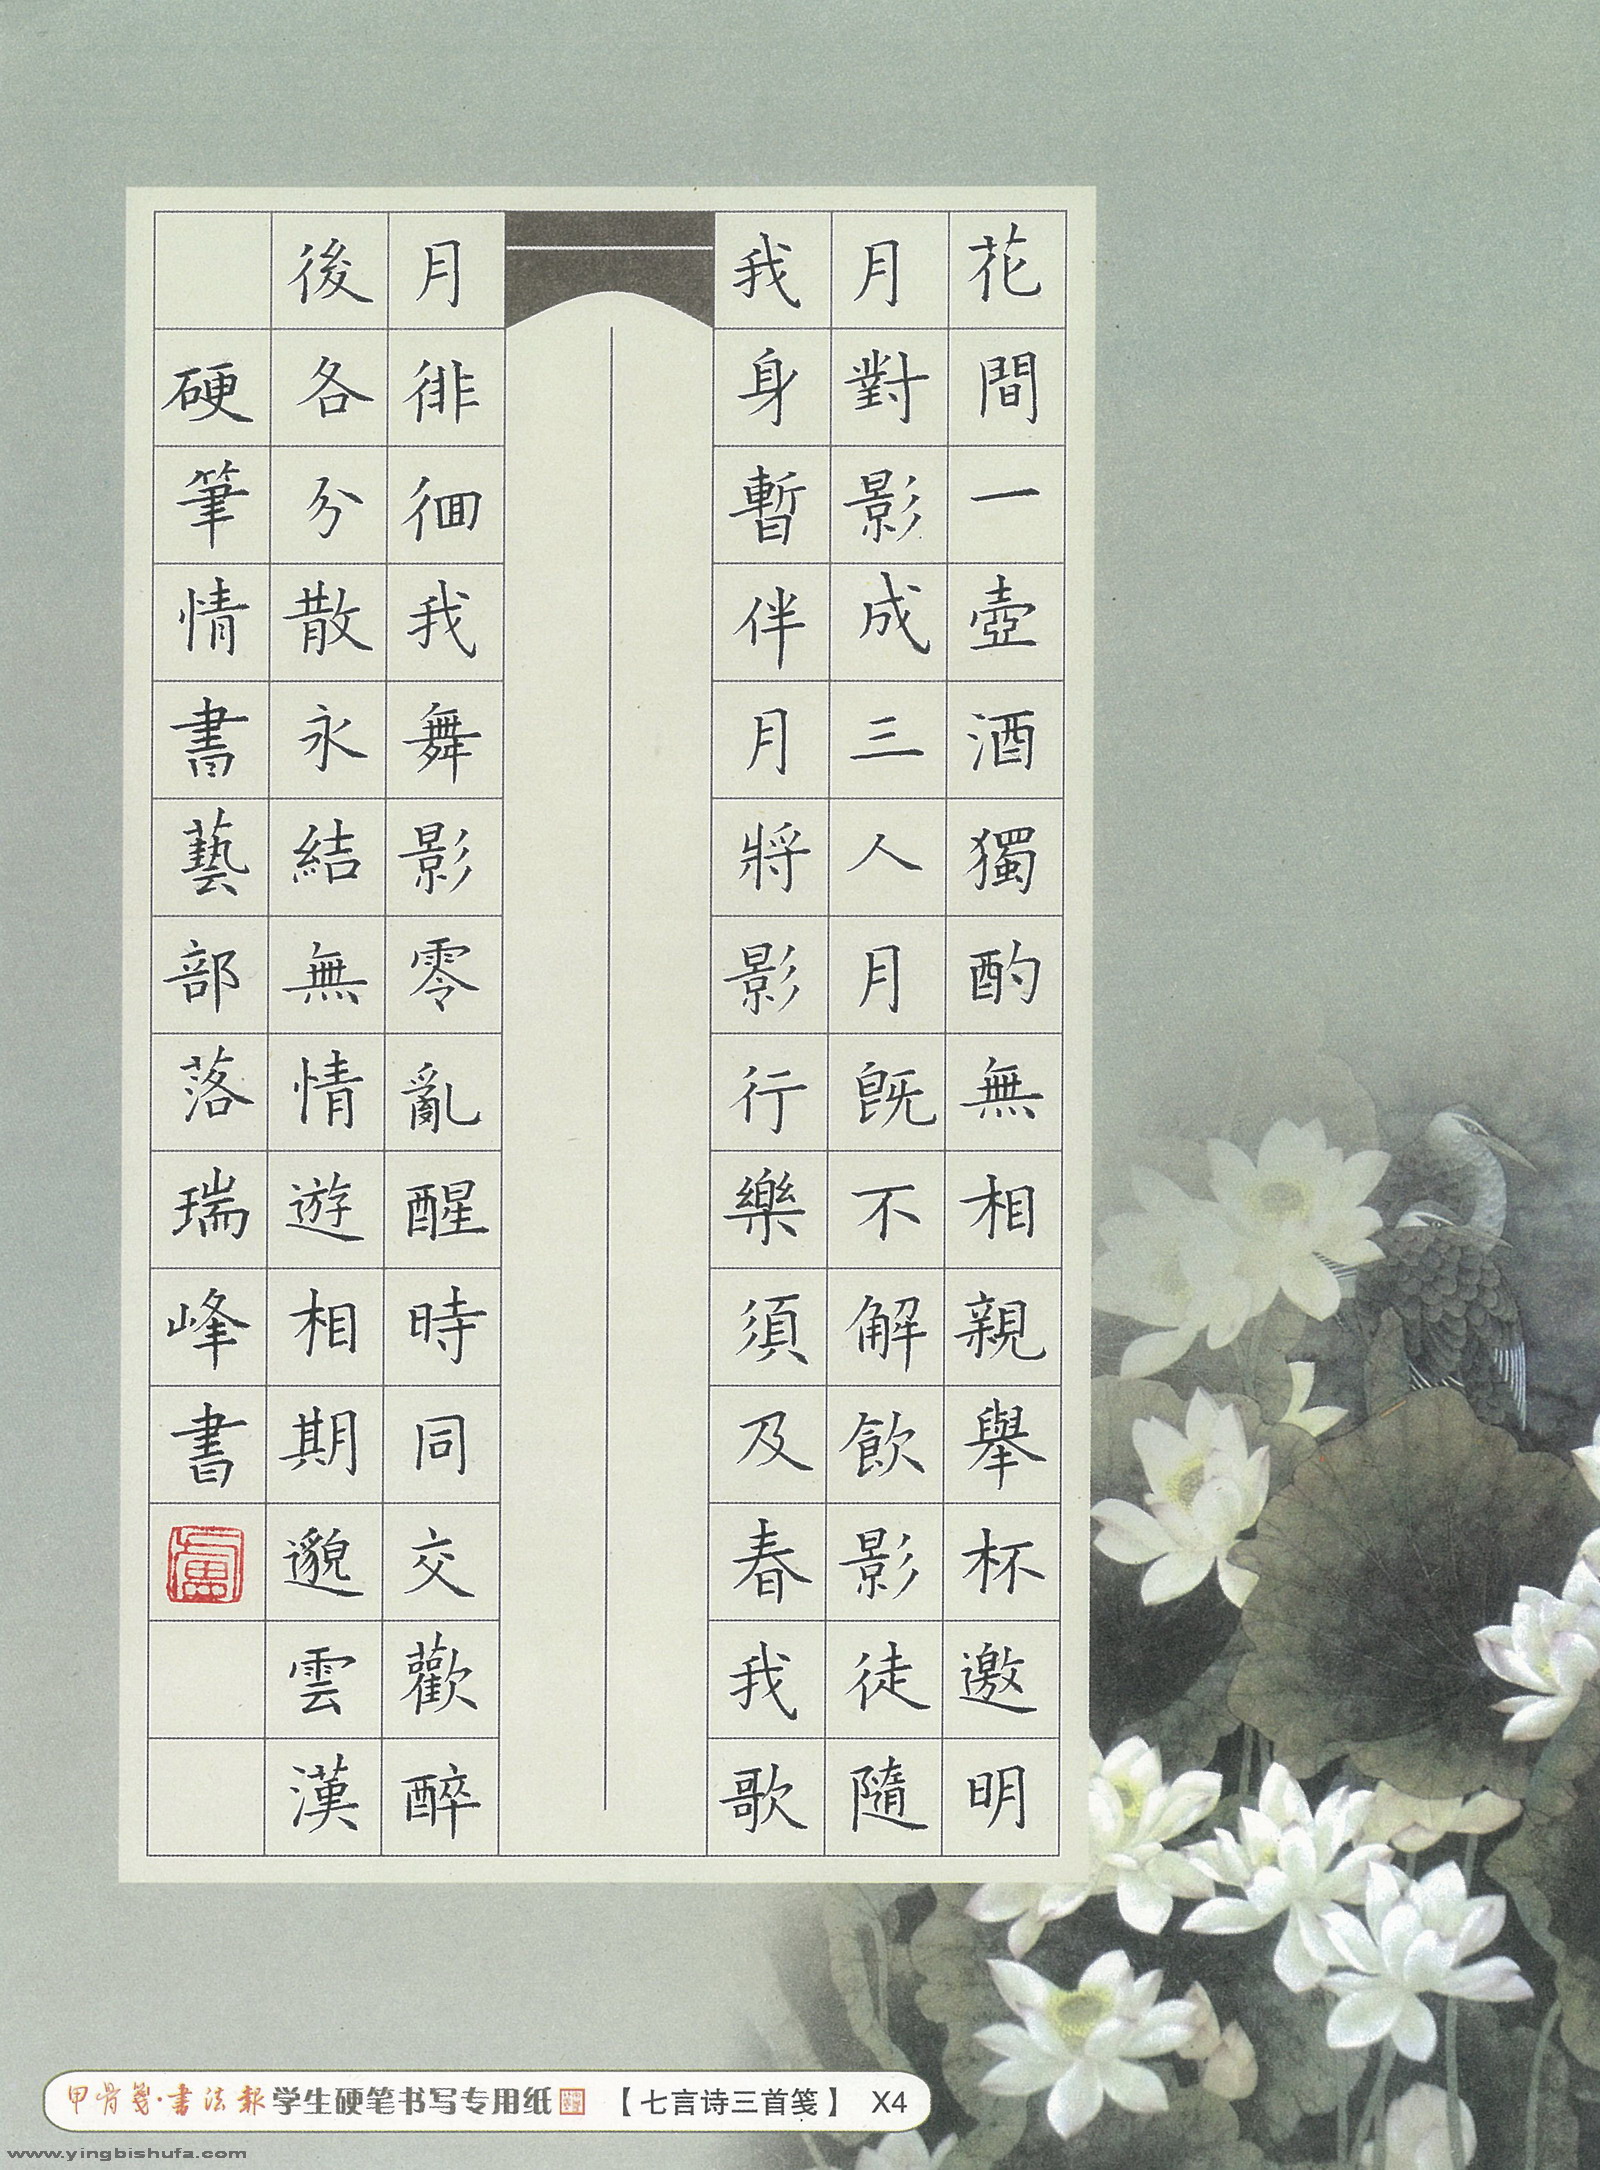 花間一壺酒獨酌無相親舉杯邀明
月對影成三人月既不解飲影徒隨
我身暫伴月將影行樂須及春我歌
月徘徊我舞影零亂醒時同交歡醉
後各分散永結無情遊相期邈雲漢
硬筆情書藝部落瑞峰書
甲骨笺·書法報学生硬笔书写专用纸 【七言诗三首笺】 X4
www.yingbishufa.com